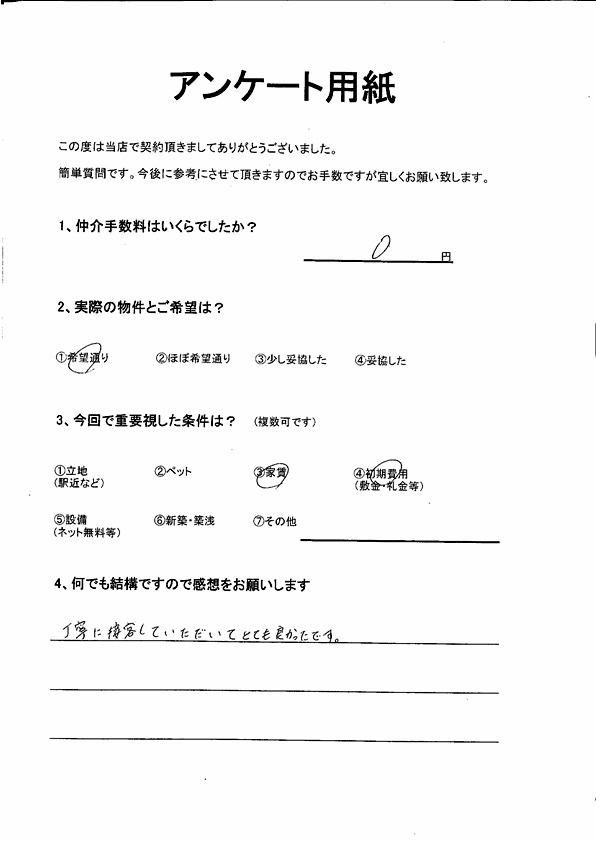 アンケート用紙
この度は当店で契約頂きましてありがとうございました。
簡単質問です。今後に参考にさせて頂きますのでお手数ですが宜しくお願い致します。
1、仲介手数料はいくらでしたか？
0 円
2、実際の物件とご希望は？
①希望通り ②ほぼ希望通り ③少し妥協した ④妥協した
3、今回で重要視した条件は？ （複数可です）
①立地 ②ペット ③家賃 ④初期費用
（駅近など） （敷金・礼金等）
⑤設備 ⑥新築・築浅 ⑦その他
（ネット無料等）
4、何でも結構ですので感想をお願いします
丁寧に接客していただいてとても良かったです。